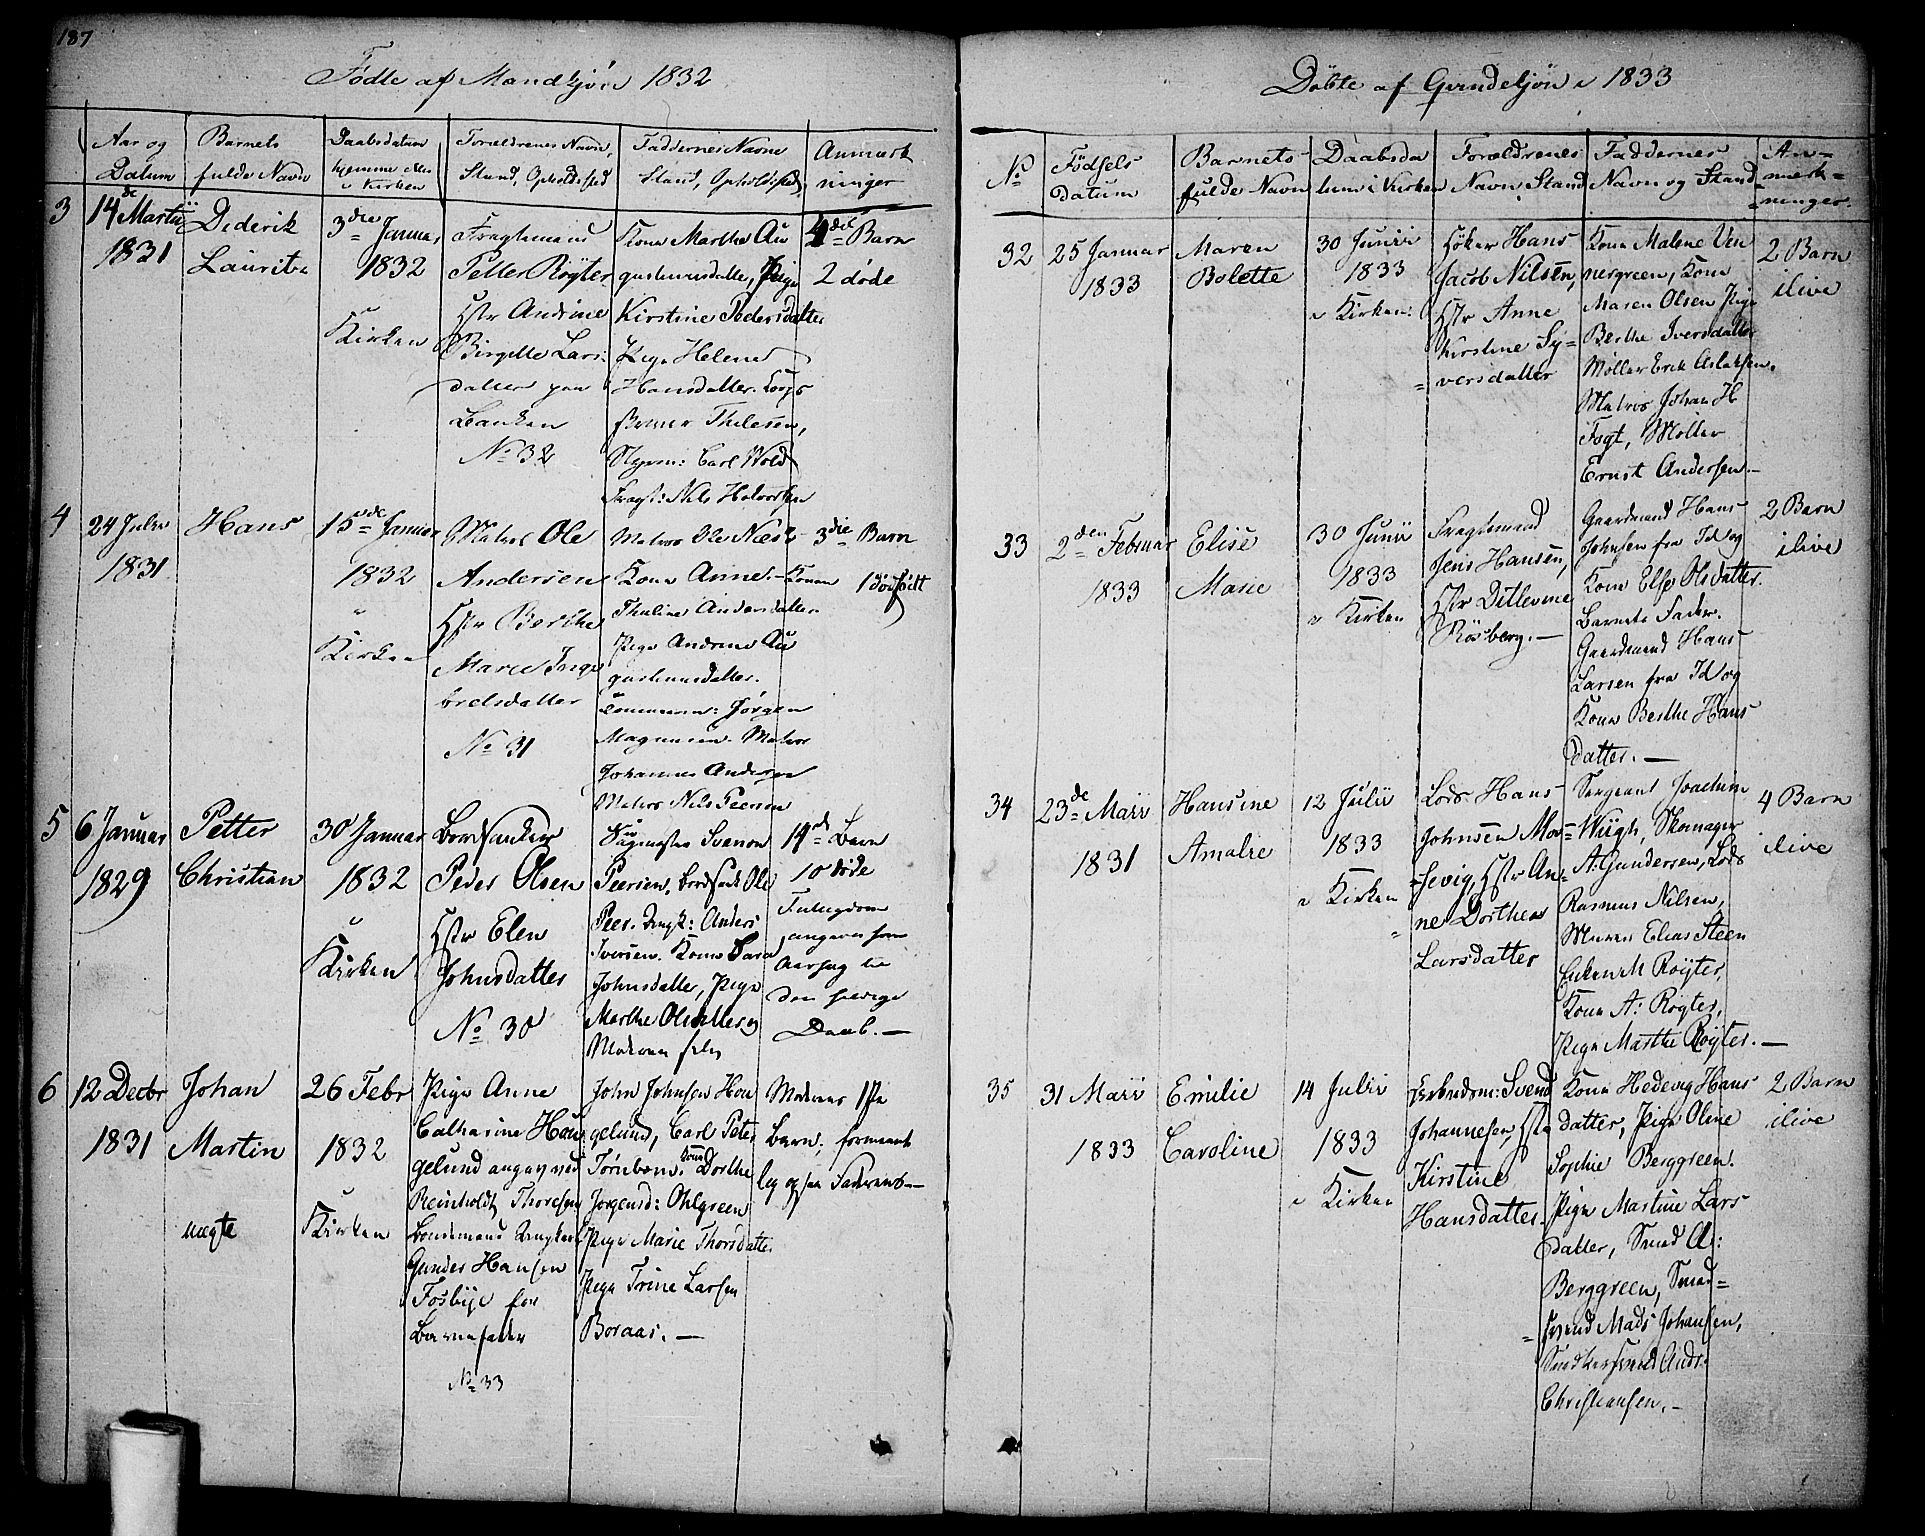 187
Fødte af Mandkjøn 1832
Aar og
Datum
Barnets
fulde Navn
Daabsdatum
hjemme eller
i Kirken
Forældrenes Navn,
Stand, Opholdsted
Faddernes Navne
Stand, Opholdsted
Anmærk
ninger
3
14de Martii
1831
Diderik
Lauritz
3die Januar
1832
i
Kirken
Fragtmand
Petter Röyter
Hstr Andrine
Birgitte Lars:
datter paa
Banken
No 32
Kone Marthe Au
gustinusdatter, Pige
Kirstine Pedersdatter
Pige Helene
Hansdatter.
Thilesen,
Styrm: Carl Wold
Fragt: Nils Halvorsen
4de Barn
2 døde
4
24 Julii
1831
Hans
15de Januar
1832
i
Kirken
Matros Ole
Andersen
Hstr Berthe
Marie Inge
bretsdatter
No 31
Matros Ole Næss
Kone Anne. Konen
Thaline Andersdatter
Pige Andrine Au
gustinusdatter.
Tømmerm: Jørgen
Magnusen. Matros
Johannes Andersen
Matros Nils Peersen
3die Barn
1 dødfødt
5
6 Januar
1829
Petter
Christian
30 Januar
1832
i
Kirken
Bordtanker
Peder Olsen
Hstr Elen
Johnsdatter
No 30
Svenon
Peersen, Ole
Peer. Anders
Iversen. Kone Sara
Johnsdatter, Pige
Marthe Olsdatter og
Moderen selv
14de Barn
10 døde
Fattigdom
angaves som
Aarsag til
den silvige
Daab. —
6
12 Decbr
1831
Johan
Martin
uægte
26 Febr
1832
i
Kirken
Pige Anne
Catharine Hau
gelund angav ved
Reinholdt Thoresen
Bondemand
Gunder Hansen
Fosbye for
Barnefader
No 33
John Johnsen Hau
gelund, Carl Peter
Törnbom. Kone Dorthe
Jørgensd: Ohlgreen
Pige Marie Thorsdatter
Pige Trine Larsen
Boraas. —
Moderens 1ste
Barn; formeent
lig ogsaa Faderens —
Döbte af Qvindekjön i 1833
No
Födsels
Datum
Barnets
fulde Navn
Daabsda
tum i Kirken
Forældrenes
Navn Stand
Faddernes
Navn og Stand
An=
mærk=
ninger.
32
25 Januar
1833
Maren
Bolette
30 Junii
1833
i Kirken:
Höker Hans
Jacob Nilsen,
Hstr Anne
Kirstine Sy=
=versdatter
Kone Malene Ven
nergreen, Kone
Maren Olsen Pige
Berthe Iversdatter
Møller Erik Aslaksen.
Matros Johan H
Fogt, Møller
Ernst Andersen. —
2 Barn
ilive
33
2den Februar
1833
Elise
Marie
30 Junii
1833
i Kirken
Fragtmand
Jens Hansen,
Hstr Ditlevine
Rösberg. —
Gaardmand Hans
Johnsen fra Id og
Kone Else Olsdatter.
Barnets Fader.
Gaardmand Hans
Larsen fra Id og
Kone Berthe Hans
datter. —
2 Barn
ilive
34
23de Maii
1831
Hansine
Amalie
12 Julii
1833
i Kirken
Lods Hans
Johnsen Mor=
=sevig, Hstr An=
ne Dorthea
Larsdatter
Sergeant Joachim
Wiigh, Skomager
A: Gundersen, Lods
Rasmus Nilsen,
Murer Elias Steen
Enken M Röyter,
Kone A: Röyter,
Pige Marthe Röyter. —
4 Barn
ilive
35
31 Maii
1833
Emilie
Caroline
14 Julii
1833
i Kirken
Svend
Johannesen, Hstr
Kirstine
Hansdatter
Kone Hedevig Hans
datter, Pige Oline
Sophie Berggreen.
Pige Martine Lars
datter, Smed A:
Berggreen, Smed=
=svend Mads Johansen,
Snedkersvend Andr.
Christiansen. —
2 Barn
ilive